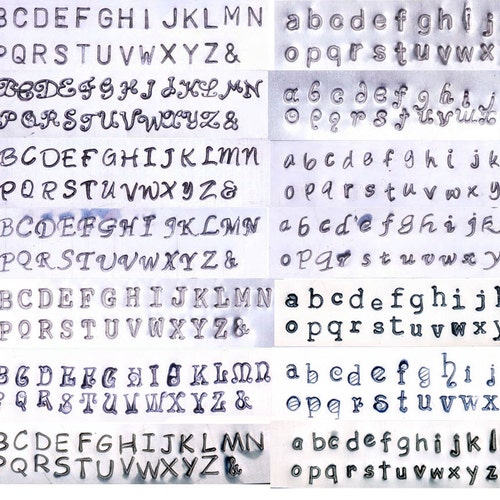 BCDEFGHIJKLMN
PQRSTUVWXYZ&
BCDEFGHIJKLMN
PQRSTUVWXYZ&
BCDEFGHIJKLMN
PQRSTUVWXYZ&
BCDEFGHIJKLMN
PQRSTUVWXYZ&
BCDEFGHIJKLMN
PQRSTUVWXYZ&
BCDEFGHIJKLMN
PQRSTUVWXYZ&
BCDEFGHIJKLMN
PQRSTUVWXYZ&
abcdefghij
opqrstuvwx
abcdefghij
opqrstuvwx
abcdefghijk
opqrstuvwxy
abcdefghijk
opqrstuvwxy
abcdefghij
opqrstuvwxy
abcdefghij
opqrstuvwxy
abcdefghijkl
opqrstuvwxyz